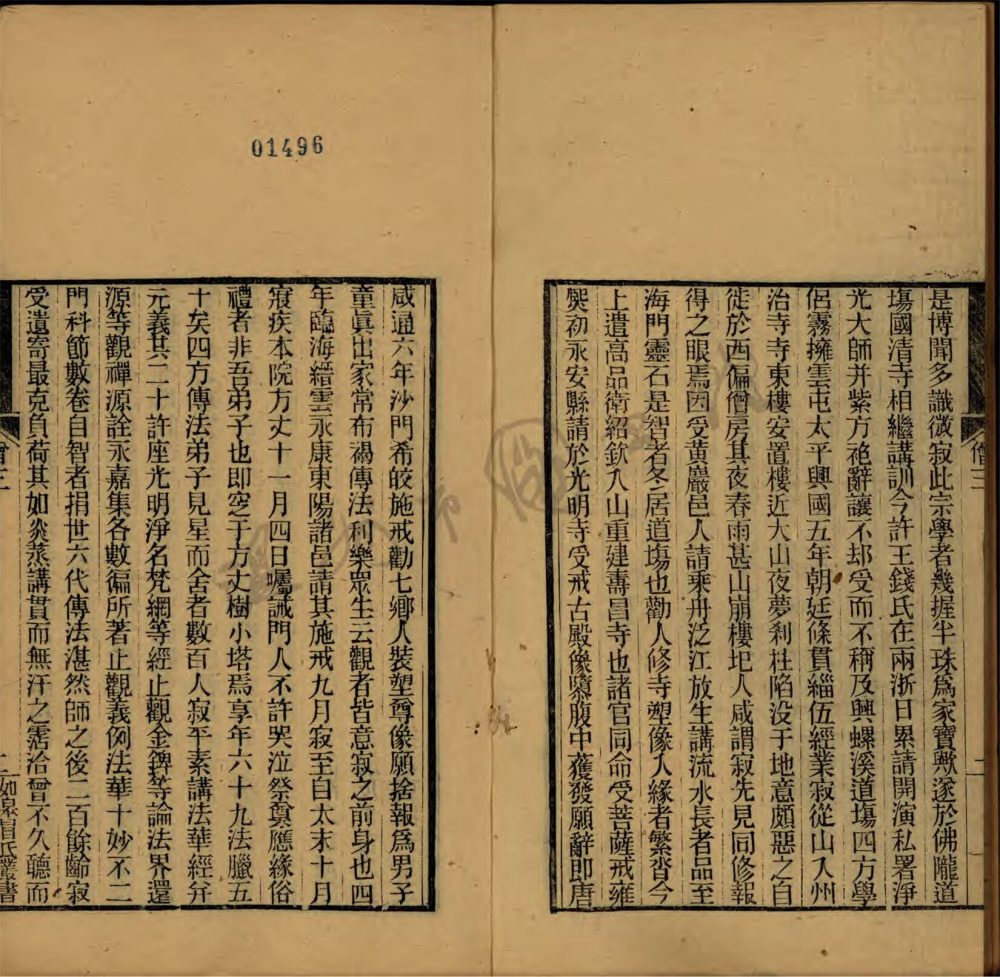 是博聞多識微寂此宗學者幾握半珠爲家寶歟遂於佛隴道
塲國清寺相繼講訓今許王錢氏在兩浙日累請開演私署淨
光大師并紫方袍辭讓不却受而不稱及興螺溪道塲四方學
侶霧擁雲屯太平興國五年朝廷條貫緇伍經業寂從山入州
治寺寺東樓安置樓近大山夜夢刹柱陷没于地意頗惡之自
徙於西偏僧房其夜春雨甚山崩樓圯人咸謂寂先見同修報
得之眼焉因受黄巖邑人請乘舟泛江放生講流水長者品至
海門靈石是智者冬居道塲也勸人修寺塑像入緣者繁沓今
上遣高品衛紹欽入山重建壽昌寺也諸官同命受菩薩戒雍
熙初永安縣請於光明寺受戒古殿像隳腹中獲發願辭即唐
僧三
二
咸通六年沙門希皎施戒勸七鄉人裝塑尊像願捨報爲男子
童眞出家常布褐傳法利樂衆生云觀者皆意寂之前身也四
年臨海縉雲永康東陽諸邑請其施戒九月寂至自太末十月
寢疾本院方丈十一月四日囑誡門人不許哭泣祭奠應緣俗
禮者非吾弟子也即窆于方丈樹小塔焉享年六十九法臘五
十矣四方傳法弟子見星而舍者數百人寂平素講法華經并
元義共二十許座光明淨名梵網等經止觀金錍等論法界還
源等觀禪源詮永嘉集各數徧所著止觀義例法華十妙不二
門科節數卷自智者捐世六代傳法湛然師之後二百餘齡寂
受遺寄最克負荷其如炎蒸講貫而無汗之霑洽曾不久聽而
僧三
二
如皋冒氏叢書
01496